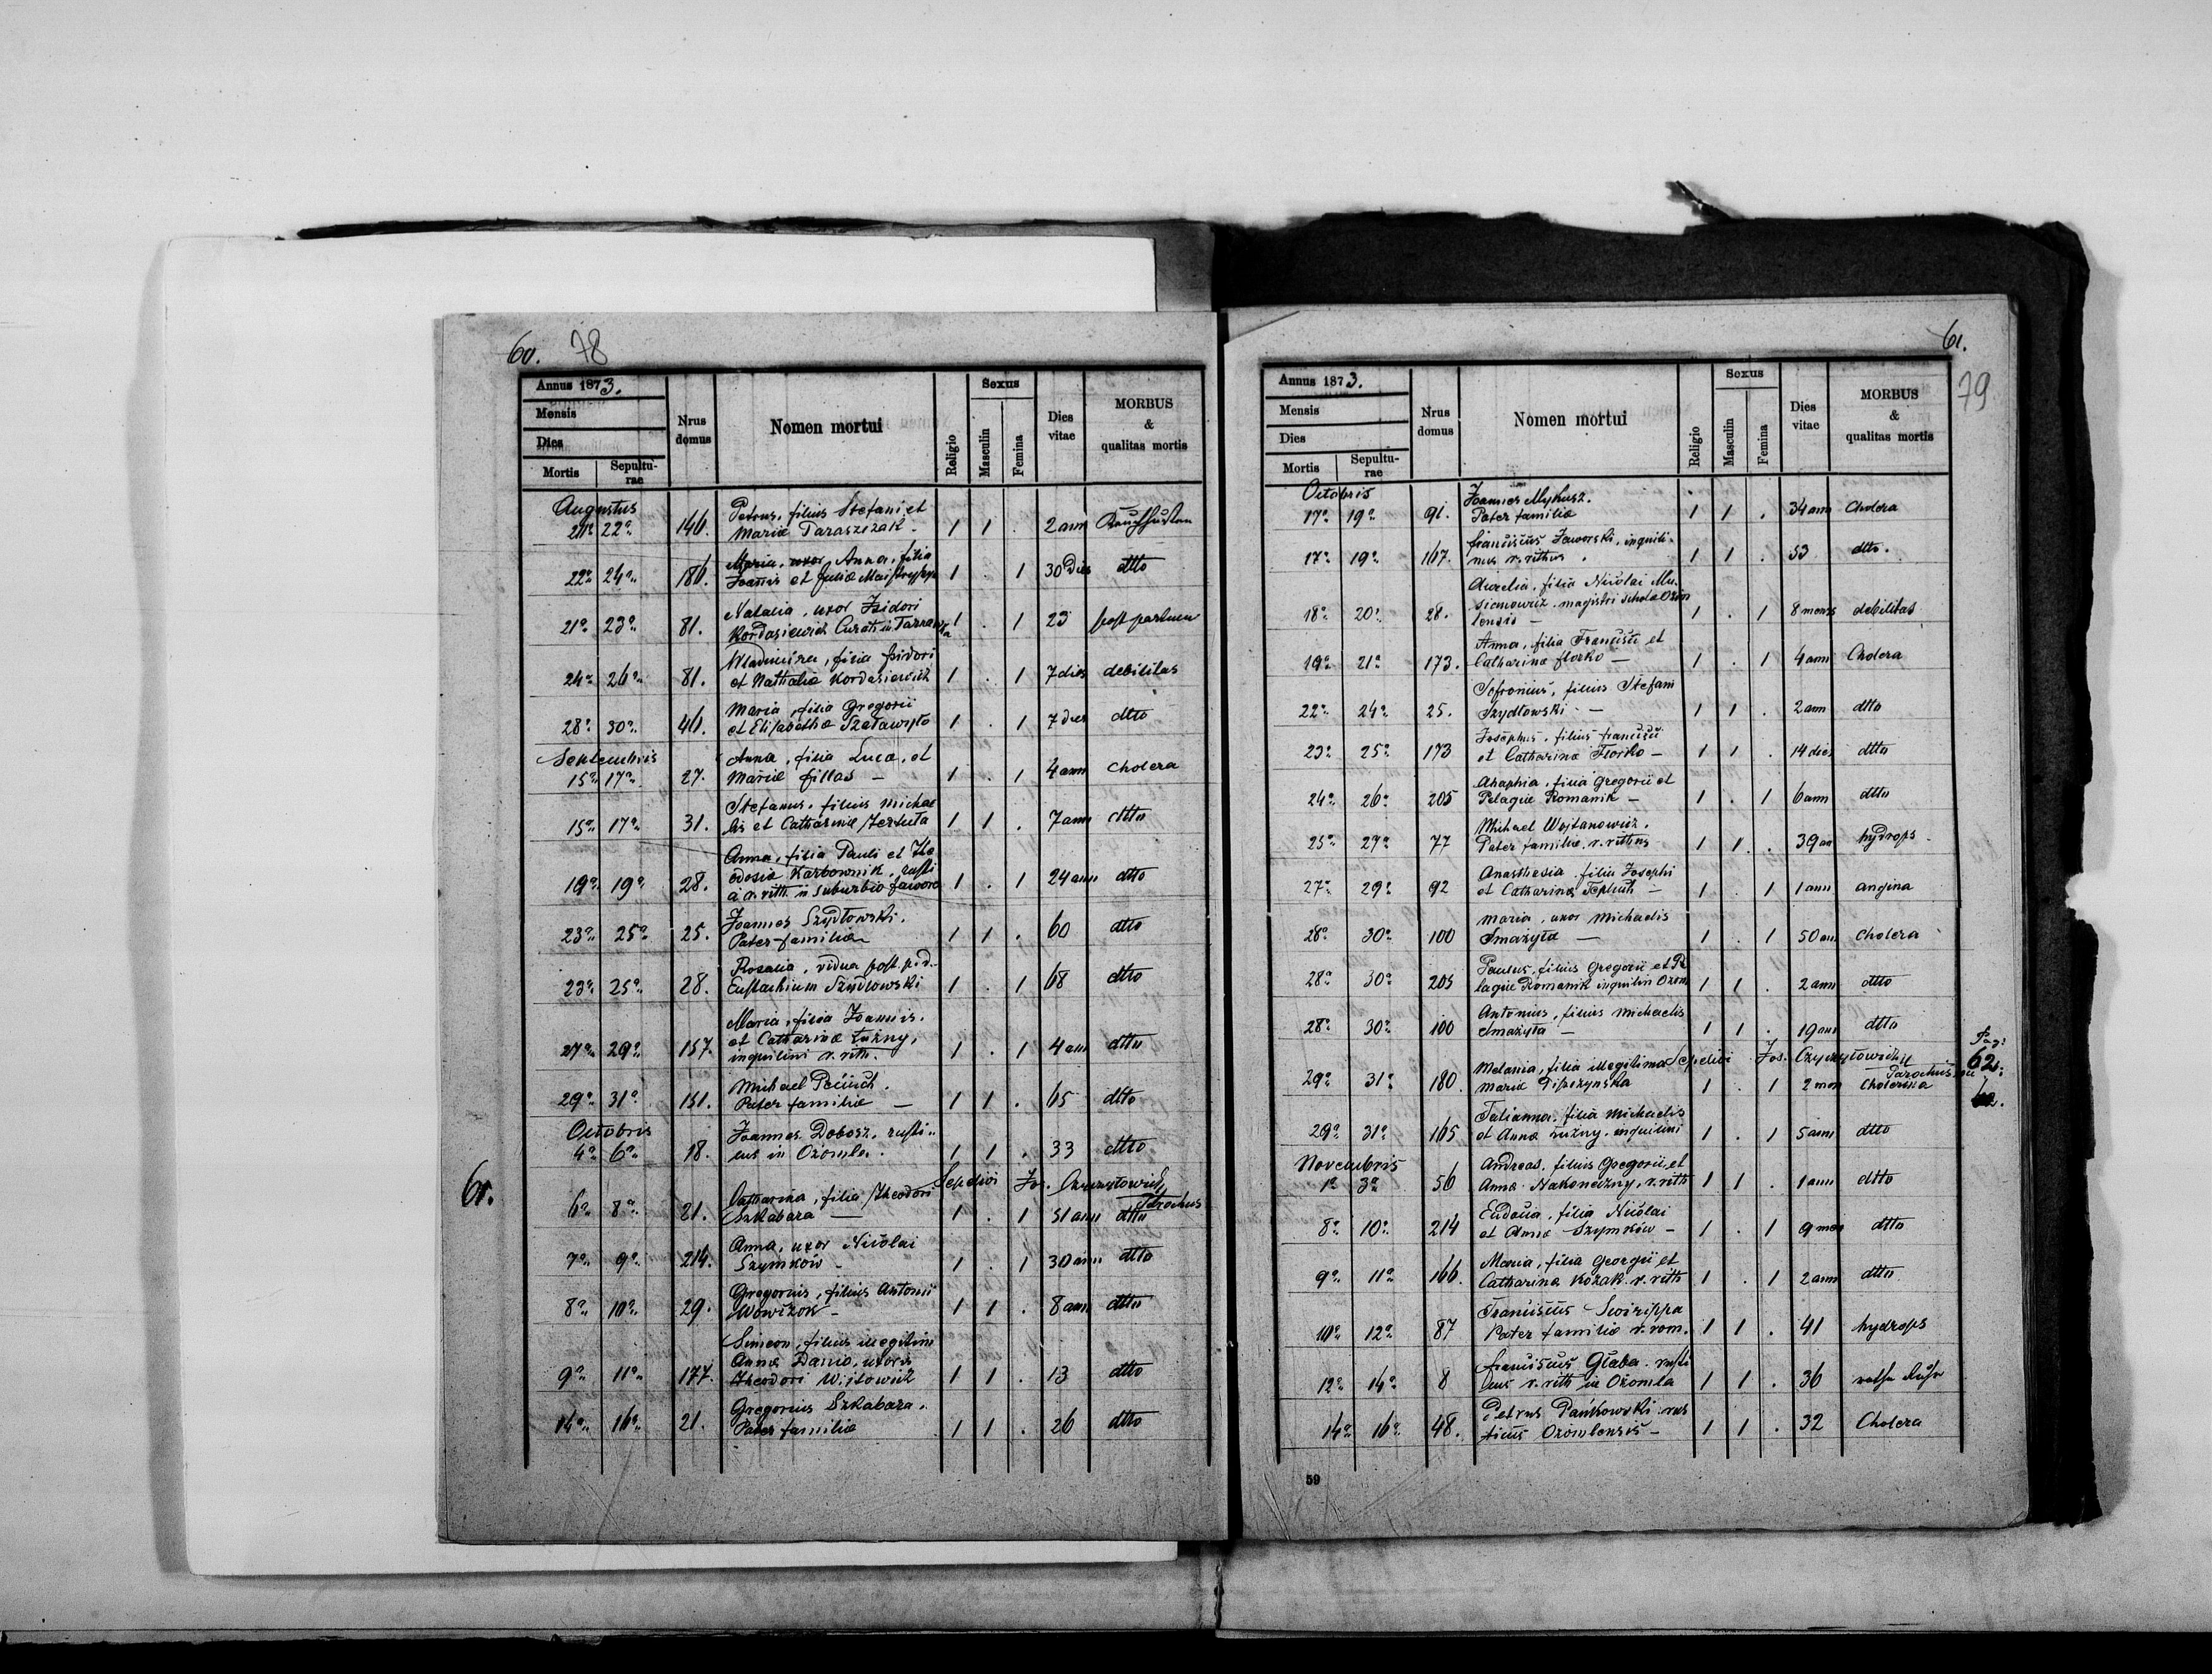 60. 78
Annus 1873.
Mensis
Dies
Mortis Sepulturae
Nrus domus
Nomen mortui
Religio
Sexus
Masculin
Femina
Dies vitae
MORBUS & qualitas mortis
Augustus
21a 22a 146. Petrus, filius Stefani et
Mariæ Taraszczak - 1 1 . 2 ann
22a 24a 186. Maria, uxor Anna, filia
Joannis et Juliæ 1 . 1 30 Dies dtto
21a 23a 81. Natalia, uxor Isidori
Kordasiewich Curati in 1 . 1 23 post partum
24a 26a 81. Wladimira, filia Isidori
et Nathaliæ Kordasiewich 1 . 1 7 dies debilitas
28a 30a 46. Maria, filia Gregorii
et Elisabethæ 1 . 1 7 dies dtto
Septembris
15a 17a 27. Anna, filia Luca, et
Mariæ fillas - 1 . 1 4 ann cholera
15a 17a 31. Stefanus, filius Michae
lis et Catharinæ 1 1 . 7 ann dtto
19a 19a 28. Anna, filia Pauli et The
odosiæ Karbownik, rusti
r. rith. in suburbio Jaworo 1 . 1 24 ann dtto
23a 25a 25. Joannes Szydłowski.
Pater familiæ 1 1 . 60 dtto
23a 25a 28. Rosalia, vidua post p. d.
Eustachium Szydlowski 1 . 1 68 dtto
27a 29a 157. Maria, filia Joannis.
et Catharinæ Łużny,
inquilini r. rith. 1 . 1 4 ann dtto
29a 31a 151. Michael
Pater familiæ - 1 1 . 65 dtto
Octobris
4a 6a 18. Joannes Dobosz, rusti-
cus in Ożomla. 1 1 . 33 dtto
Sepelivi Jos. Czyrzytowich,
Parochus
61.
6a 8a 21. Catharina, filia Theodori
Szkabara - 1 . 1 51 ann dtto
7a 9a 214. Anna, uxor Nicolai
Szymków - 1 . 1 30 ann dtto
8a 10a 29. Gregorius, filius Antonii
- 1 1 . 8 ann dtto
9a 11a 177. Simeon, filius illegitim
Annæ Danio, uxoris
Theodori Wijtowich 1 1 . 13 dtto
14a 16a 21. Gregorius Szkabara.
Pater familiæ 1 1 . 26 dtto
61.
79
Annus 1873.
Mensis
Dies
Mortis Sepulturae
Nrus domus
Nomen mortui
Religio
Sexus
Masculin
Femina
Dies vitae
MORBUS & qualitas mortis
Octobris
17a 19a 91. Joannes Mykusz.
Pater familiæ 1 1 . 34 ann Cholera
17a 19a 167. franciscus Jaworski, inquili-
nus r. rithus. 1 1 . 53 dtto.
18a 20a 28. Aurelia, filia Nicolai Mu-
sionowicz magistri scholæ Ozom
lensis - 1 . 1 8 mens debilitas
19a 21a 173. Anna, filia Francisci et
Catharinæ florko - 1 . 1 4 ann Cholera
22a 24a 25. Sofronius, filius Stefani
Szydlowski - 1 1 . 2 ann dtto
23a 25a 173 Josephus, filius francisci
et Catharinæ Florko - 1 1 . 14 dies dtto
24a 26a 205 Ahaphia, filia Gregorii et
Pelagiæ Romanik - 1 . 1 6 ann dtto
25a 27a 77 Michael Wojtanowicz.
Pater familiæ, r. rithus 1 1 . 39 an hydrops
27a 29a 92 Anasthasia filia Josephi
et Catharinæ - 1 . 1 1 ann angina
28a 30a 100 Maria, uxor Michaelis
Smażyła - 1 . 1 50 ann cholera
28a 30a 205 Paulus, filius Gregorii et Pe
lagiæ Romanik inquilin Ozom 1 1 . 2 ann dtto
28a 30a 100 Antonius, filius Michaelis
Smażyła - 1 1 . 19 ann dtto
Sepelivi Jos. Czyrzytowicz
Parochus
Pag: 62.
29a 31a 180. Melania, filia illegitima
Mariæ 1 . 1 2 mon cholera
29a 31a 165 Tatianna, filia Michaelis
et Annæ Łużny, inquilini 1 . 1 5 ann dtto
Novembris
1a 3a 56 Andreas, filius Gregorii, et
Anna Nakoneczny, r. rith 1 1 . 1 ann dtto
8a 10a 214 Eudocia, filia Nicolai
et Annæ Szymków - 1 . 1 9 mens dtto
9a 11a 166. Maria, filia Georgii et
Catharinæ Kozak r. rith 1 . 1 2 ann dtto
10a 12a 87 Franciscus
Pater familiæ r. rom. 1 1 . 41 hydrops
12a 14a 8 franciscus Głaba. rusti
cus r. rith in Ożomla 1 1 . 36
14a 16a 48. Petrus Pańkowski rus
ticus Ożomlensis - 1 1 . 32 Cholera
59